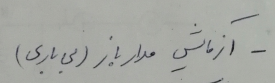 - آزمایش مدار باز (بی باری)